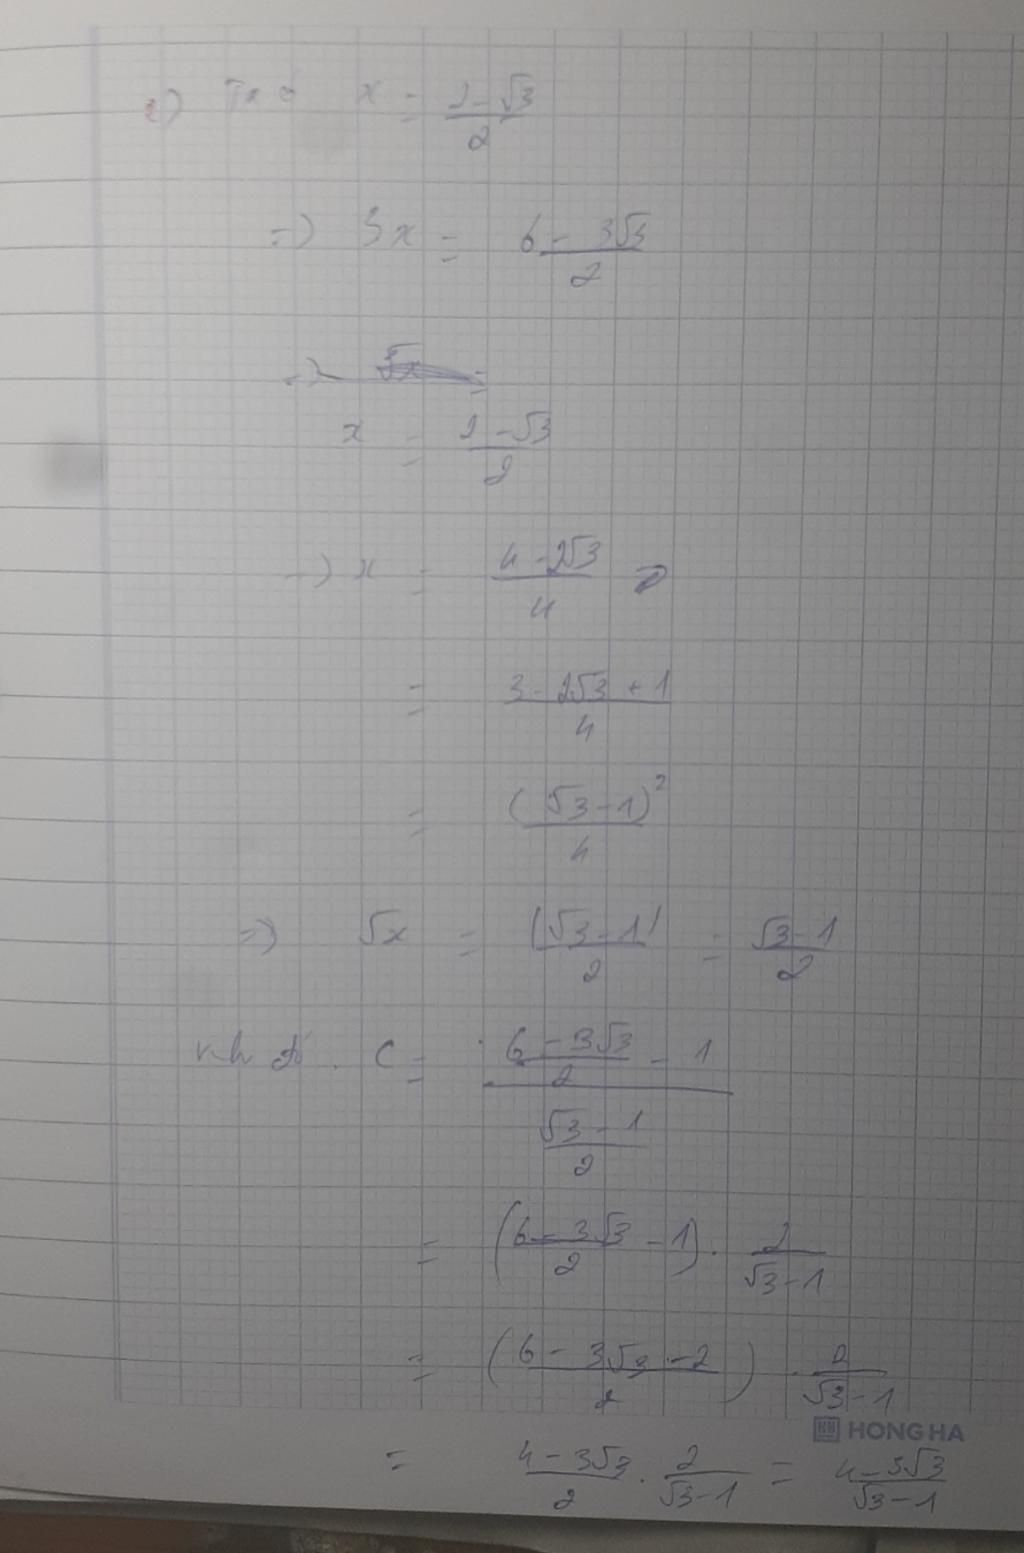 c) Ta có x = \frac{2-\sqrt{3}}{2}
=) 3x = \frac{6-3\sqrt{3}}{2}
=)
x = \frac{2-\sqrt{3}}{2}
=) x = \frac{4-2\sqrt{3}}{4}
= \frac{3-2\sqrt{3}+1}{4}
= \frac{(\sqrt{3}-1)^2}{4}
=) \sqrt{x} = \frac{|\sqrt{3}-1|}{2} = \frac{\sqrt{3}-1}{2}
C = \frac{\frac{6-3\sqrt{3}}{2}-1}{\frac{\sqrt{3}-1}{2}}
= (\frac{6-3\sqrt{3}}{2}-1) . \frac{2}{\sqrt{3}-1}
= (\frac{6-3\sqrt{3}-2}{2}) . \frac{2}{\sqrt{3}-1}
HONG HA
= \frac{4-3\sqrt{3}}{2} . \frac{2}{\sqrt{3}-1} = \frac{4-3\sqrt{3}}{\sqrt{3}-1}